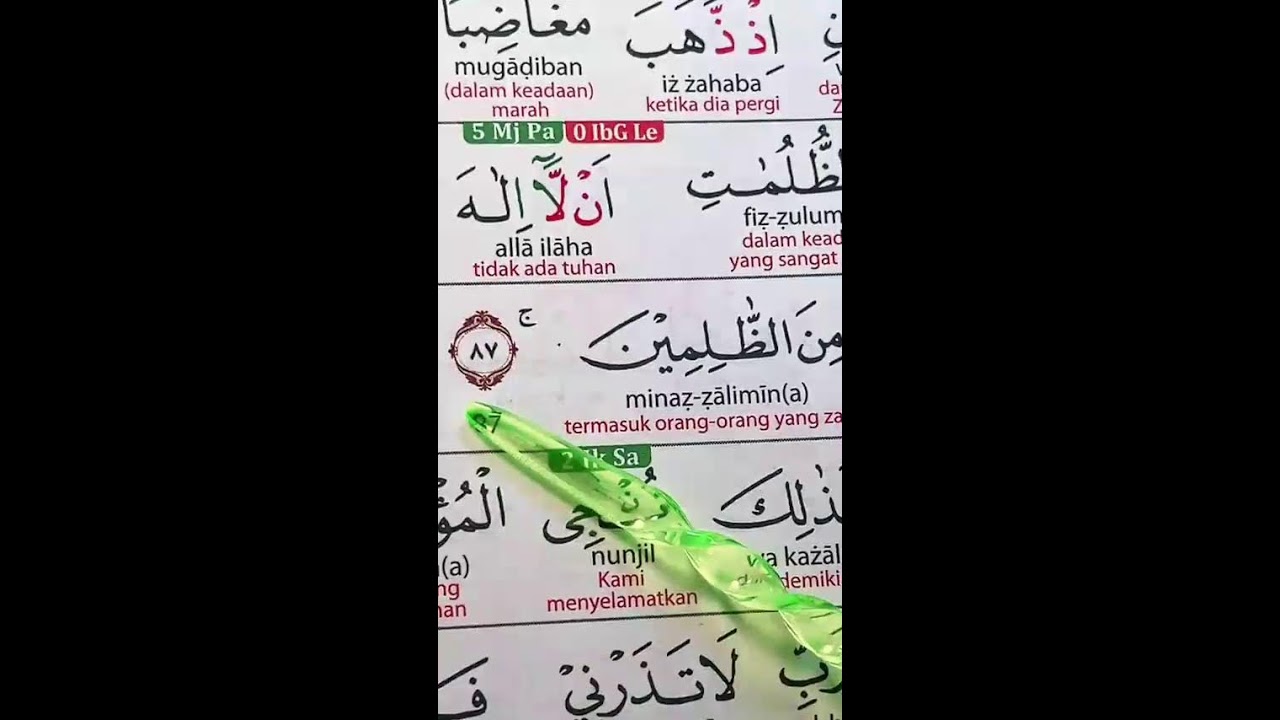 اِذْ ذَّهَبَ مغَاضِبًا
iż żahaba mugāḍiban
ketika dia pergi (dalam keadaan)
marah
5 Mj Pa 0 IbG Le
الظُّلُمٰتِ اَنْ لَّآ اِلٰهَ
fiẓ-ẓulum allā ilāha
dalam kead tidak ada tuhan
yang sangat
مِنَ الظّٰلِمِيْنَ ج ٨٧
minaẓ-ẓālimīn(a)
termasuk orang-orang yang za 87
2 Ik Sa
ذٰلِكَ نُنْجِى الْمُؤْ
wa każāl nunjil (a)
demiki Kami ng
menyelamatkan an
رَبِّ لَا تَذَرْنِيْ فَ